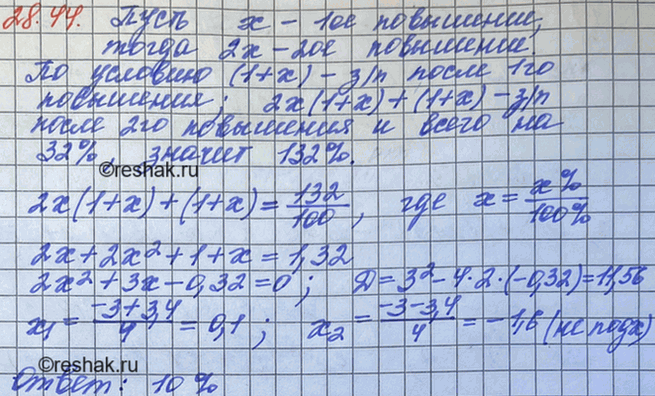 28.44. Пусть x - 1ое повышение,
тогда 2x - 2ое повышение.
По условию (1+x) - з/п после 1го
повышения; 2x(1+x)+(1+x) - з/п
после 2го повышения и всего на
32%, значит 132%.
©reshak.ru
2x(1+x)+(1+x)=132/100, где x=x%/100%
2x+2x²+1+x=1,32
2x²+3x-0,32=0; Д=3²-4·2·(-0,32)=11,56
x₁=(-3+3,4)/4=0,1; x₂=(-3-3,4)/4=-1,6 (не подх)
©reshak.ru
Ответ: 10%